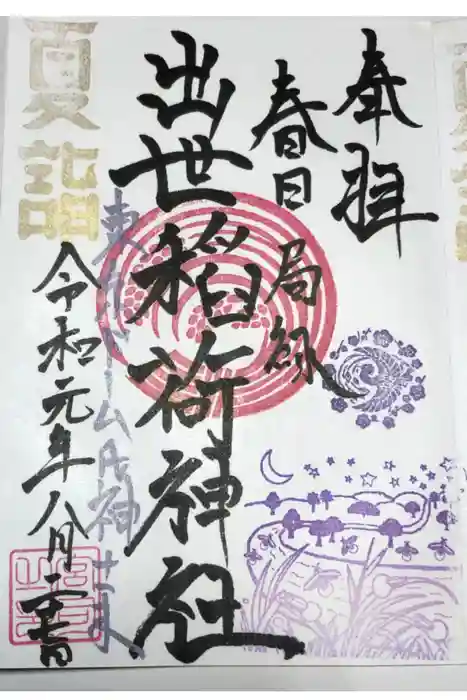 奉拝
春日局縁
出世稲荷神社
東京ドーム氏神
令和元年八月
夏詣